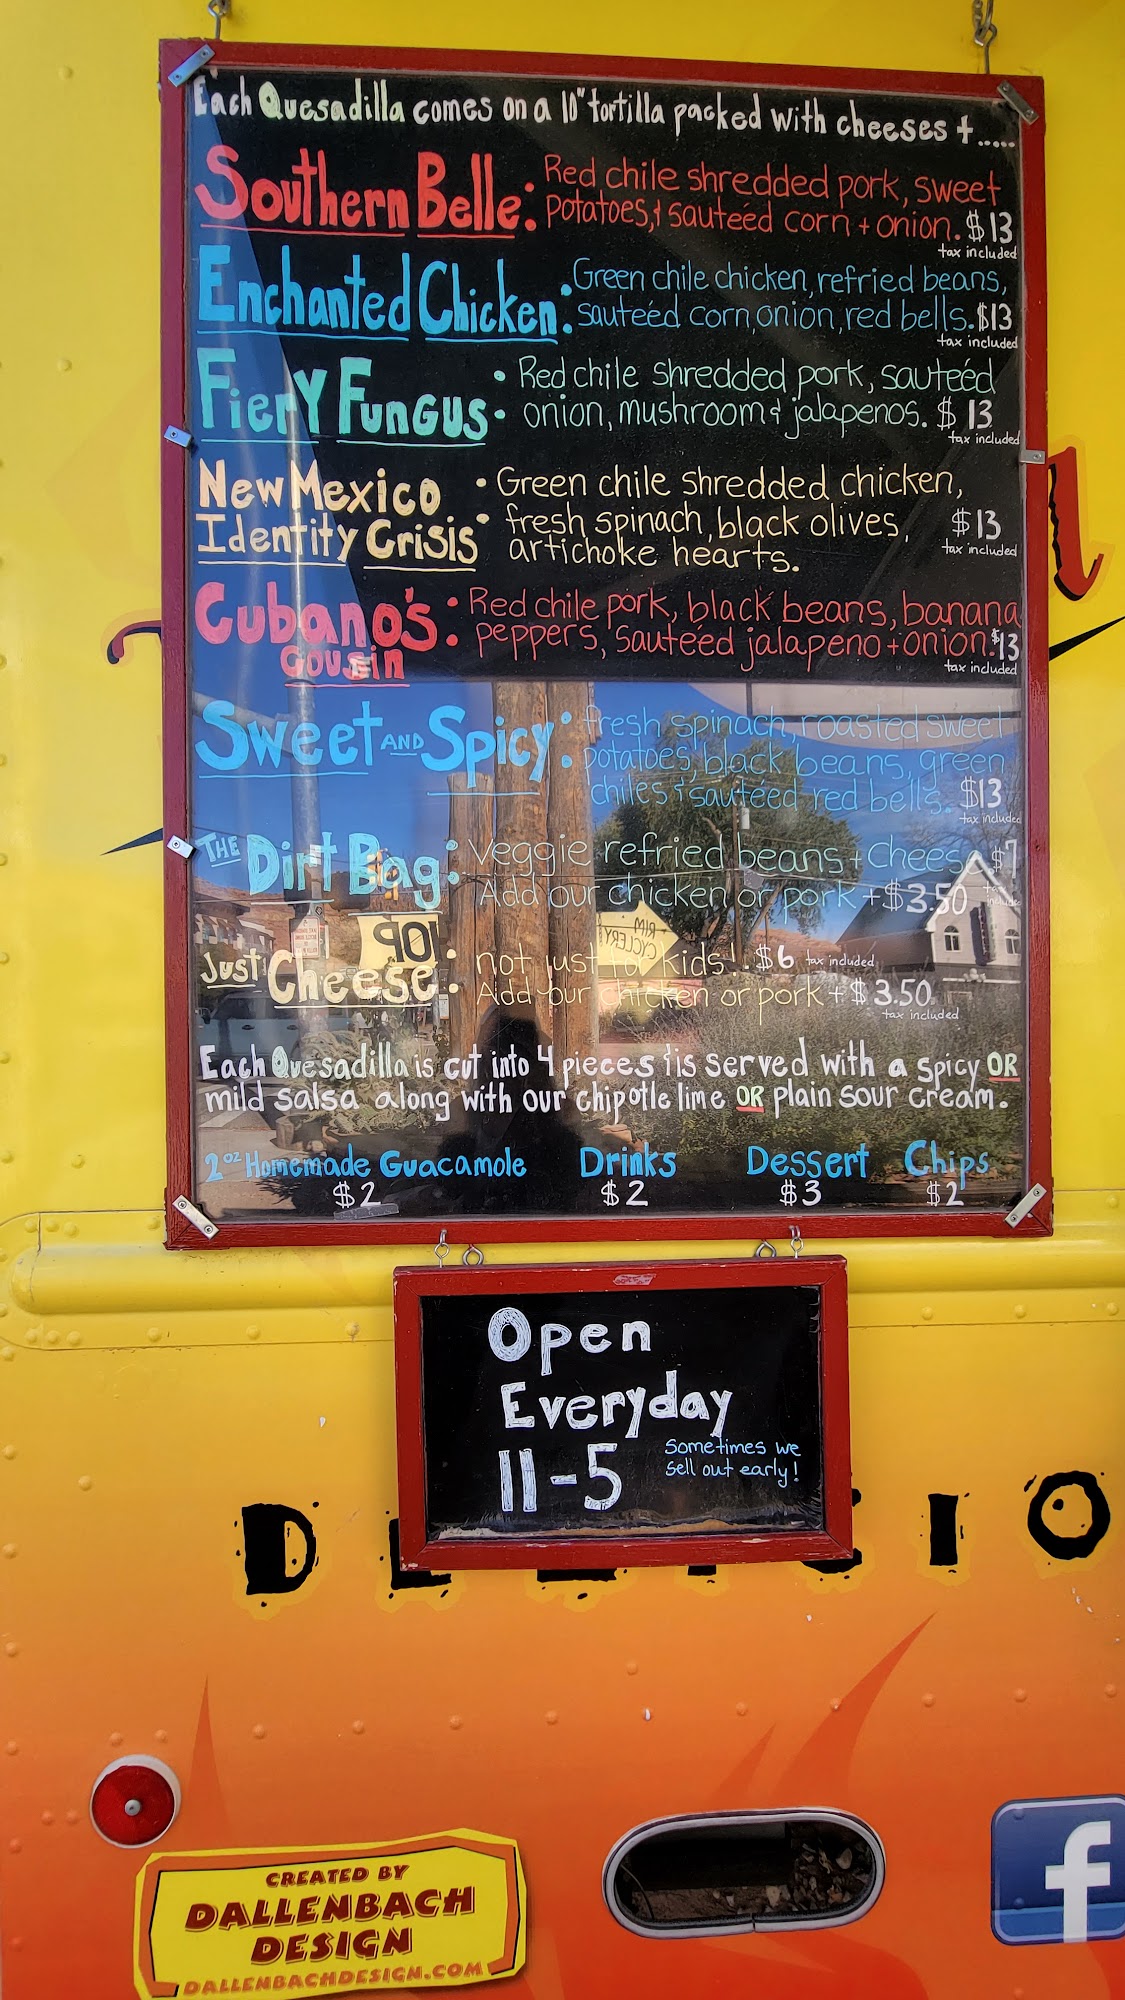 Each Quesadilla comes on a 10" tortilla packed with cheeses + .....
Southern Belle: Red chile shredded pork, sweet
potatoes, & sautéed corn + onion. $13
tax included
Enchanted Chicken: Green chile chicken, refried beans,
sauteéd corn, onion, red bells. $13
tax included
Fiery Fungus: Red chile shredded pork, sauteéd
onion, mushroom & jalapenos. $13
tax included
New Mexico
Identity Crisis: Green chile shredded chicken,
fresh spinach, black olives,
artichoke hearts.
$13
tax included
Cubano's
Cousin: Red chile pork, black beans, banana
peppers, sauteed jalapeno + onion. $13
tax included
Sweet AND Spicy: fresh spinach, roasted sweet
potatoes, black beans, green
chiles & sautéed red bells. $13
tax included
THE Dirt Bag: Veggie refried beans + Cheese $7
Add our chicken or pork + $3.50
tax included
Just Cheese: not just for kids! $6 tax included
Add our chicken or pork + $3.50
tax included
Each Quesadilla is cut into 4 pieces & is served with a spicy OR
mild salsa along with our chipotle lime OR plain sour cream.
2oz Homemade Guacamole
$2
Drinks
$2
Dessert
$3
Chips
$2
Open
Everyday
11-5
Sometimes we
sell out early!
CREATED BY
DALLENBACH
DESIGN
DALLENBACHDESIGN.COM
RIM
CYCLERY
f